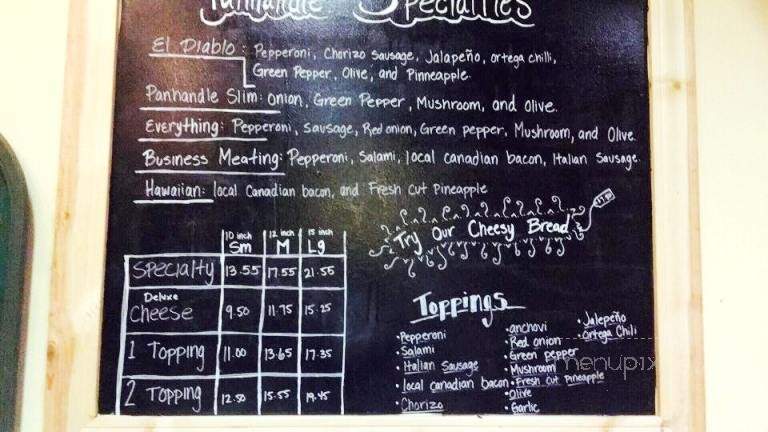 Panhandle Specialties
El Diablo: Pepperoni, Chorizo Sausage, Jalapeño, ortega chilli,
Green Pepper, Olive, and Pinneapple.
Panhandle Slim: Onion, Green Pepper, Mushroom, and olive.
Everything: Pepperoni, Sausage, Red onion, Green pepper, Mushroom, and Olive.
Business Meating: Pepperoni, Salami, local canadian bacon, Italian Sausage.
Hawaiian: local Canadian bacon, and Fresh Cut Pineapple
Try Our Cheesy Bread
10 inch 12 inch 15 inch
Sm M Lg
Specialty 13.55 17.55 21.55
Deluxe
Cheese 9.50 11.75 15.25
1 Topping 11.00 13.65 17.35
2 Topping 12.50 15.55 19.45
Toppings
• Pepperoni
• Salami
• Italian Sausage
• local canadian bacon
• Chorizo
• anchovi
• Red onion
• Green pepper
• Mushroom
• Fresh Cut Pineapple
• Olive
• Garlic
• Jalepeño
• Ortega Chili
menupix